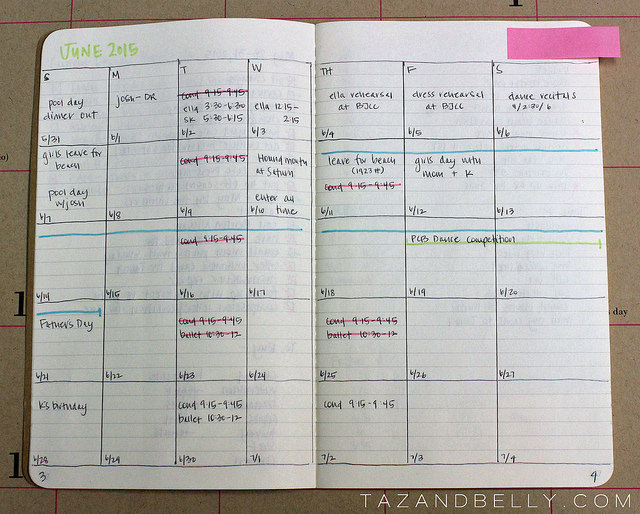 JUNE 2015
S
M
T
W
TH
F
S
pool day
dinner out
5/31
josh - DR
6/1
cond 9:15-9:45
ella 3:30-6:30
SK 5:30-6:15
6/2
ella 12:15-
2:15
6/3
ella rehearsal
at BJCC
6/4
dress rehearsal
at BJCC
6/5
dance recitals
6/6
girls leave for
beach
pool day
w/josh
6/7
6/8
cond 9:15-9:45
6/9
Hound mouth
at Saturn
enter au
time
6/10
leave for beach
cond 9:15-9:45
6/11
girls day with
mom + K
6/12
6/13
6/14
6/15
cond 9:15-9:45
6/16
6/17
6/18
PCB Dance Competition
6/19
6/20
Father's Day
6/21
6/22
cond 9:15-9:45
ballet 10:30-12
6/23
6/24
cond 9:15-9:45
ballet 10:30-12
6/25
6/26
6/27
K's birthday
6/28
6/29
cond 9:15-9:45
ballet 10:30-12
6/30
7/1
cond 9:15-9:45
7/2
7/3
7/4
3
4
1
1
day
TAZANDBELLY.COM